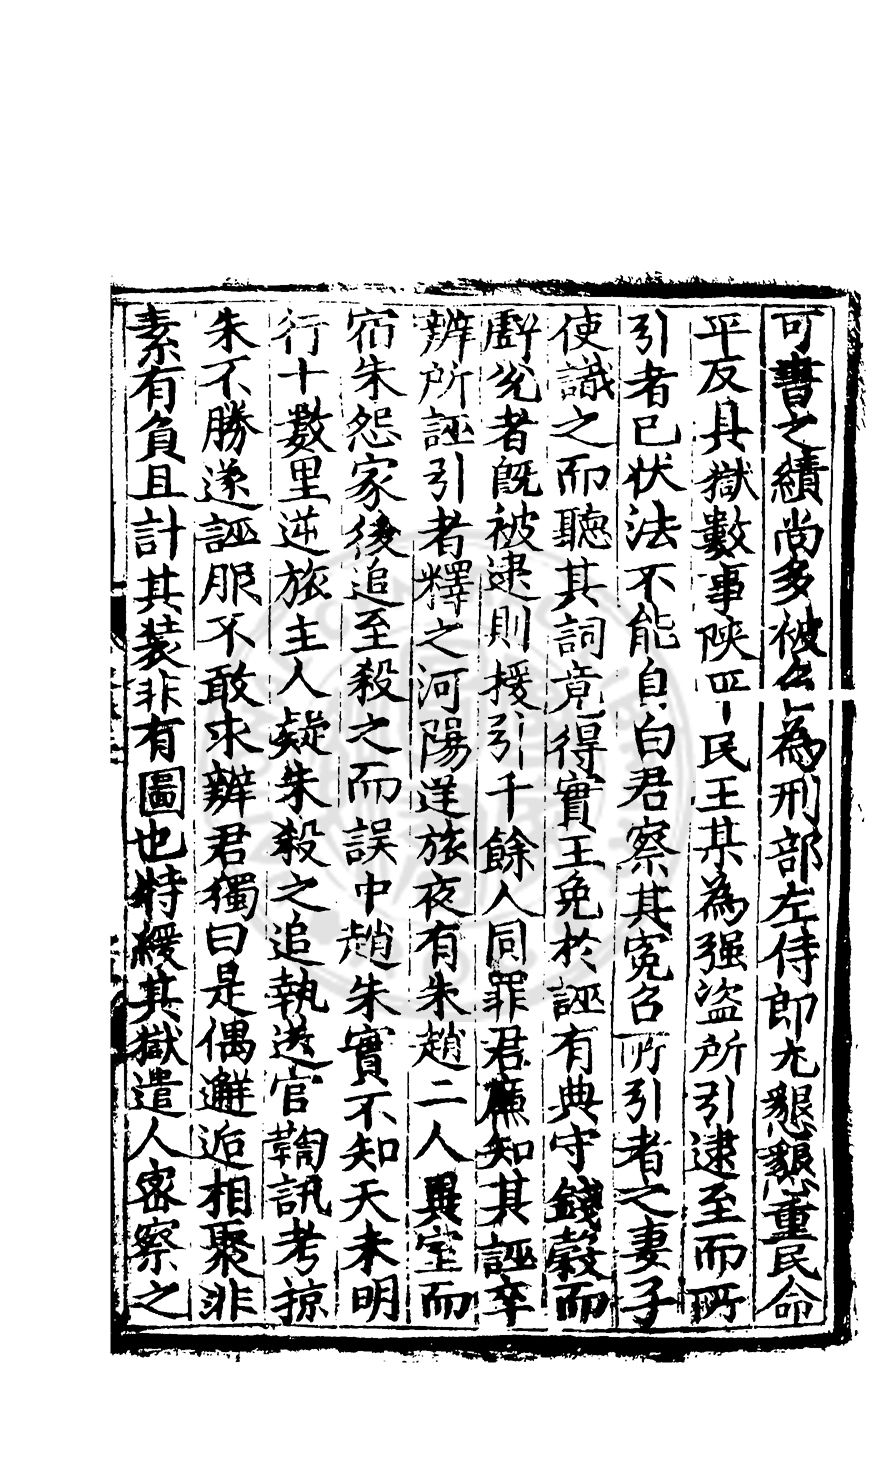 可書之績尚多被命為刑部左侍郎尤懇懇重民命
平反具獄數事陝西民王某為强盗所引逮至而所
引者已伏法不能自白君察其寃召所引者之妻子
使識之而聽其詞竟得實王免於誣有典守錢穀而
虧兊者既被逮則援引千餘人同罪君廉知其誣卒
辨所誣引者釋之河陽逆旅夜有朱趙二人異室而
宿朱怨家後追至殺之而誤中趙朱實不知天未明
行十數里逆旅主人疑朱殺之追執送官鞫訊考掠
朱不勝遂誣服不敢求辨君獨曰是偶邂逅相聚非
素有負且計其装非有圖也特緩其獄遣人密察之